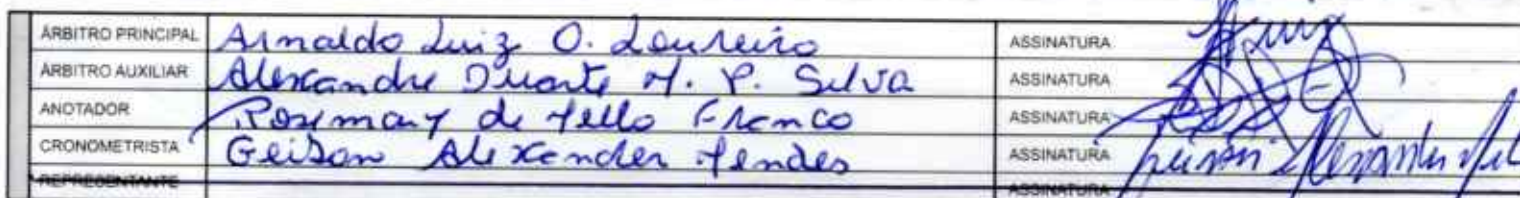 ÁRBITRO PRINCIPAL Arnaldo Luiz O. Loureiro ASSINATURA
ÁRBITRO AUXILIAR Alexandre Duarte M. P. Silva ASSINATURA
ANOTADOR Rosemary de Mello Franco ASSINATURA
CRONOMETRISTA Geison Alexander Mendes ASSINATURA
REPRESENTANTE ASSINATURA